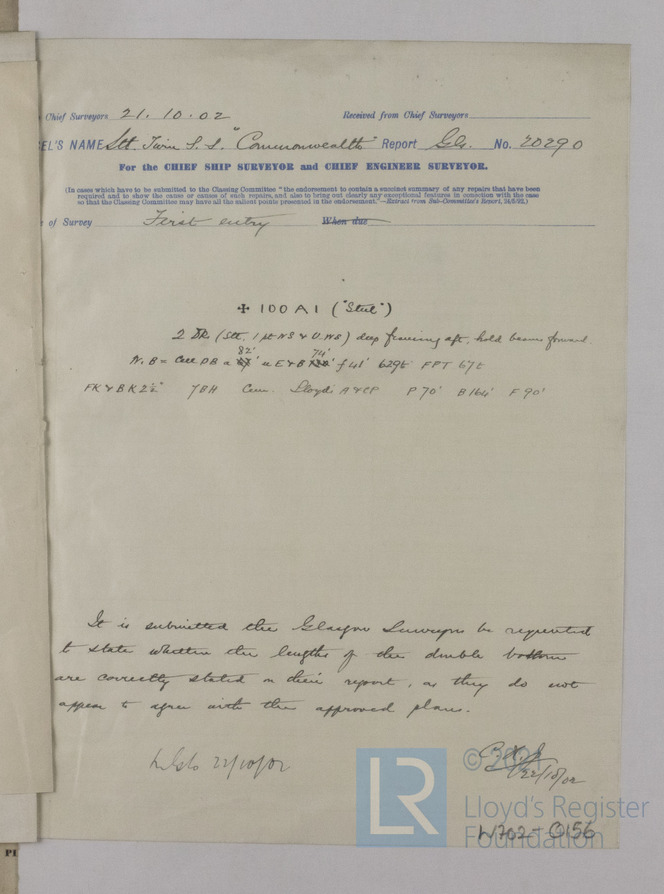 Chief Surveyors 21.10.02 Received from Chief Surveyors
EL'S NAME Stl. Twin S.S. "Commonwealth" Report Gls. No. 20290
For the CHIEF SHIP SURVEYOR and CHIEF ENGINEER SURVEYOR.
(In cases which have to be submitted to the Classing Committee "the endorsement to contain a succinct summary of any repairs that have been
required and to show the cause or causes of such repairs, and also to bring out clearly any exceptional features in conection with the case
so that the Classing Committee may have all the salient points presented in the endorsement."—Extract from Sub-Committee's Report, 24/2/92.)
of Survey First entry When due
✠ 100 A1 ("Steel")
2 Dks (Stl. 1 pt W S & U. W S) deep framing aft, hold beams forward
82' 74'
W. B = Cell DB a u E & B f 41' 629t FPT 67t
FK & BK 2½" 7BH Cem. Lloyds A & CP P 70' B 164' F 90'
It is submitted the Glasgow Surveyors be requested
to state whether the lengths of the double bottom
are correctly stated in their report, as they do not
appear to agree with the approved plans.
22/10/02
22/10/02
© 2021
LR
Lloyd's Register
Foundation
W702-0156
PI